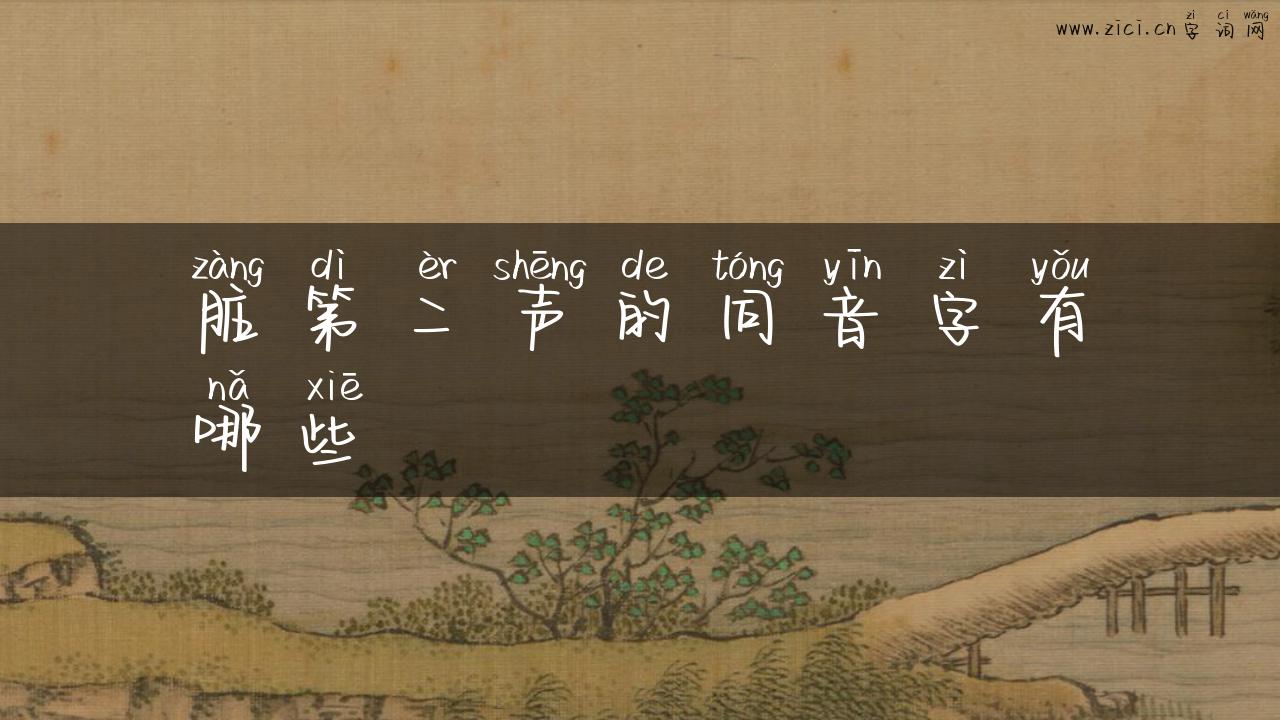 zì cí wǎng
www.zici.cn 字 词 网
zàng dì èr shēng de tóng yīn zì yǒu
脏 第 二 声 的 同 音 字 有
nǎ xiē
哪 些